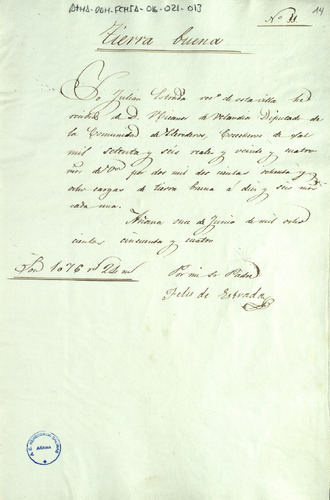 ATHA-DAH-FCHSA-016-021-013
14
Nº 11
Tierra buena
Yo Julian Estrada vecº de esta villa he
recivido de D. Nicanor de Velandia Diputado de
la Comunidad de Herederos, Caballeros de Sal
mil setenta y seis reales y veinte y cuatro
mrs de Von por dos mil dos cientas ochenta y
ocho cargas de tierra buena a diez y seis mrs
cada una.
Añana once de Junio de mil ocho
cientos cincuenta y cuatro
Son 1076 rs 24 ms
Por mi Sr Padre
Felix de Estrada
AÑANA